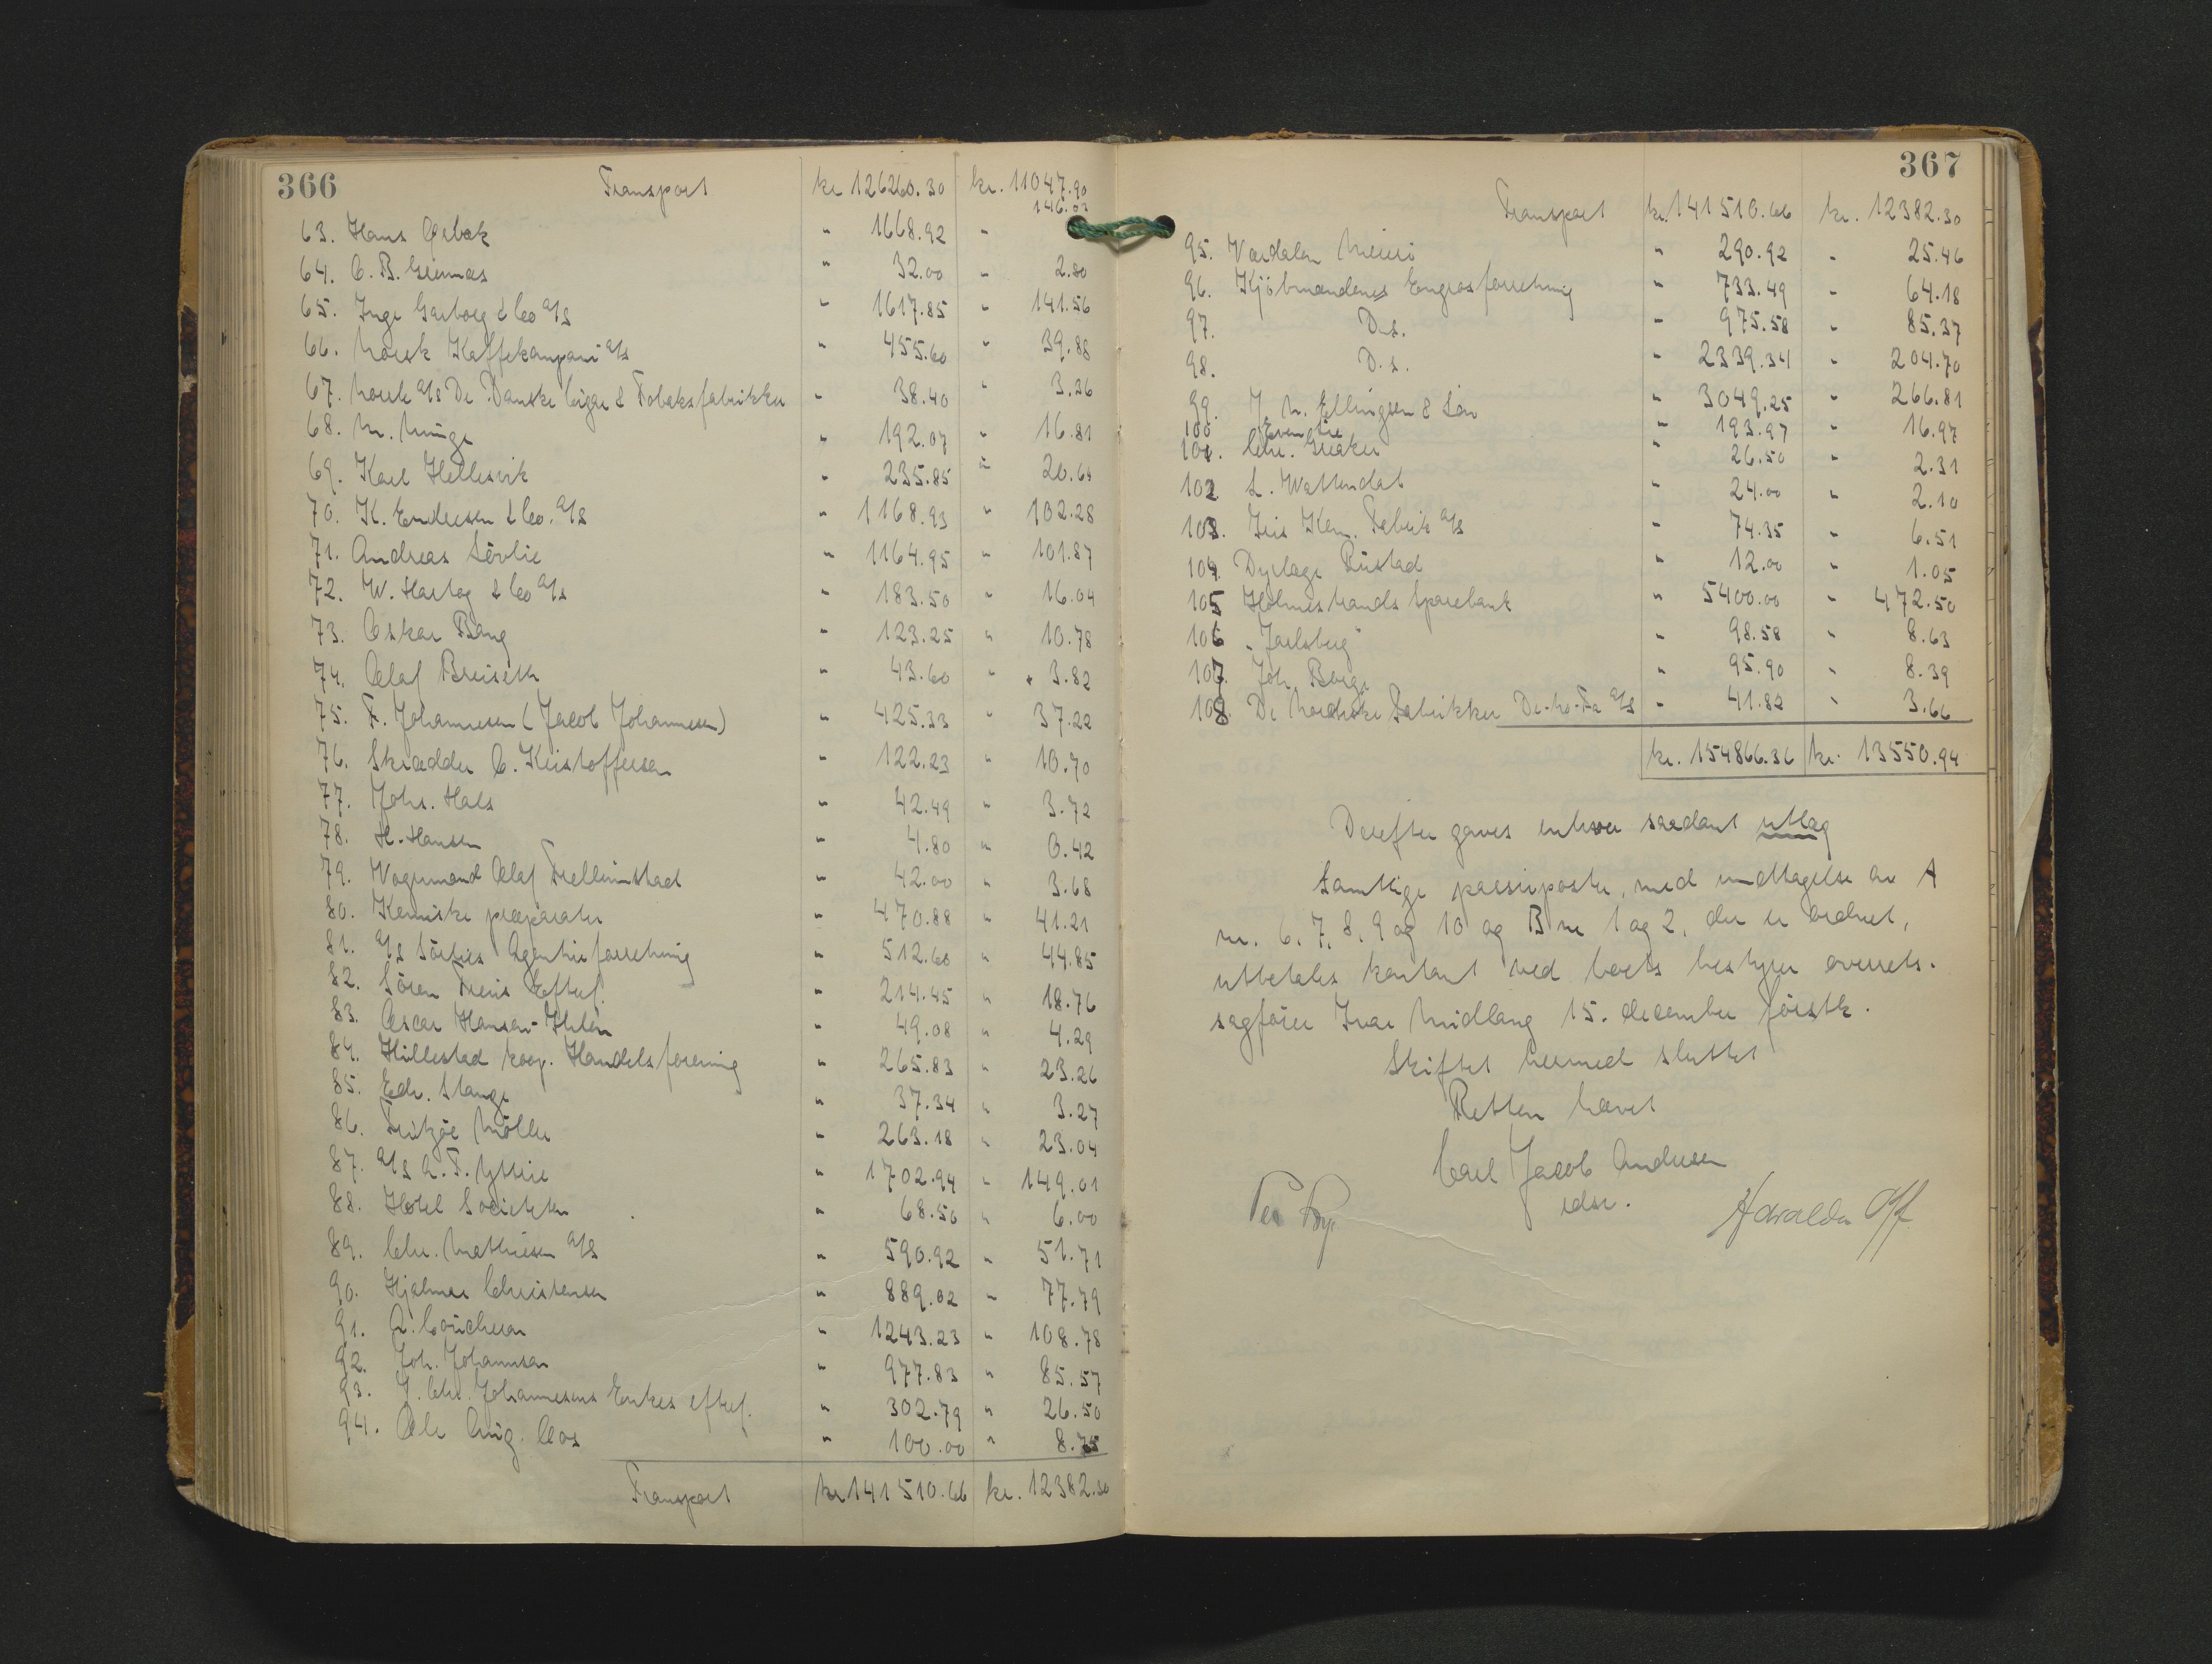 366
Transport kr 126260.30 kr. 11047.90
63. Hans Ørbæk " 1668.92 " 146.02
64. O. B. Grennæs " 32.00 " 2.80
65. Inge Garborg & Co A/S " 1617.85 " 141.56
66. Norsk Kaffekompani A/S " 455.60 " 39.88
67. Norsk A/S De Danske Cigar & Tobaksfabrikker " 38.40 " 3.36
68. M. Minge " 192.07 " 16.81
69. Karl Hellesvik " 235.85 " 20.64
70. K. Endresen & Co. A/S " 1168.93 " 102.28
71. Andreas Lövlie " 1164.95 " 101.87
72. W. Hartog & Co A/S " 183.50 " 16.04
73. Oskar Bang " 123.25 " 10.78
74. Olaf Breiseth " 43.60 " 3.82
75. F. Johannesen (Jacob Johannesen) " 425.33 " 37.22
76. Skrædder O. Kristoffersen " 122.23 " 10.70
77. Johs. Hals " 42.49 " 3.72
78. H. Hansen " 4.80 " 0.42
79. Vognmand Olaf Trellerudstad " 42.00 " 3.68
80. Kemiske præparater " 470.88 " 41.21
81. A/S Agenturforretning " 512.60 " 44.85
82. Sören Friis Eftf. " 214.45 " 18.76
83. Oscar Hansen-Ihlen " 49.08 " 4.29
84. Hillestad koop. Handelsforening " 265.83 " 23.26
85. Edv. Stange " 37.34 " 3.27
86. Fritzöe Möller " 263.18 " 23.04
87. A/S A. F. Yttrie " 1702.94 " 149.01
88. Hotel Societeten " 68.50 " 6.00
89. Chr. Mathiesen A/S " 590.92 " 51.71
90. Hjalmar Christensen " 889.02 " 77.79
91. A. " 1243.23 " 108.78
92. Joh. Johannsen " 977.83 " 85.57
93. J. Chr. Johannesens Enkes eftf. " 302.79 " 26.50
94. Ole Aug. Aos " 100.00 " 8.75
Transport kr 141510.66 kr. 12382.30
367
Transport kr. 141510.66 kr. 12382.30
95. Værdalen Meieri " 290.92 " 25.46
96. Kjöbmændenes Engrosforretning " 733.49 " 64.18
97. D.s. " 975.58 " 85.37
98. D.s. " 2339.34 " 204.70
99. J. N. Ellingsen & Sön " 3049.25 " 266.81
100 Even Lie " 193.97 " 16.97
101. Chr. Greaker " 26.50 " 2.31
102 L. Wattendal " 24.00 " 2.10
103. Iris Kem. Fabrik A/S " 74.35 " 6.51
104. Dyrlæge Rustad " 12.00 " 1.05
105 Holmestrands Sparebank " 5400.00 " 472.50
106 "Jarlsberg" " 98.58 " 8.63
107. Joh. Borge " 95.90 " 8.39
108. De Nordiske Fabrikker De-No-Fa A/S " 41.82 " 3.66
kr. 154866.36 kr. 13550.94
Derefter gaves enhver saadant utlæg
Samtlige passivposter, med undtagelse av A
nr. 6, 7, 8, 9 og 10 og B nr 1 og 2, der er ordnet,
utbetales kontant ved boets bestyrer overrets-
sagförer Ivar Midlang 15. december förstk.
Skiftet hermed sluttet
Retten hævet
Carl Jacob Andersen
edsv.
Per Haralden Off.